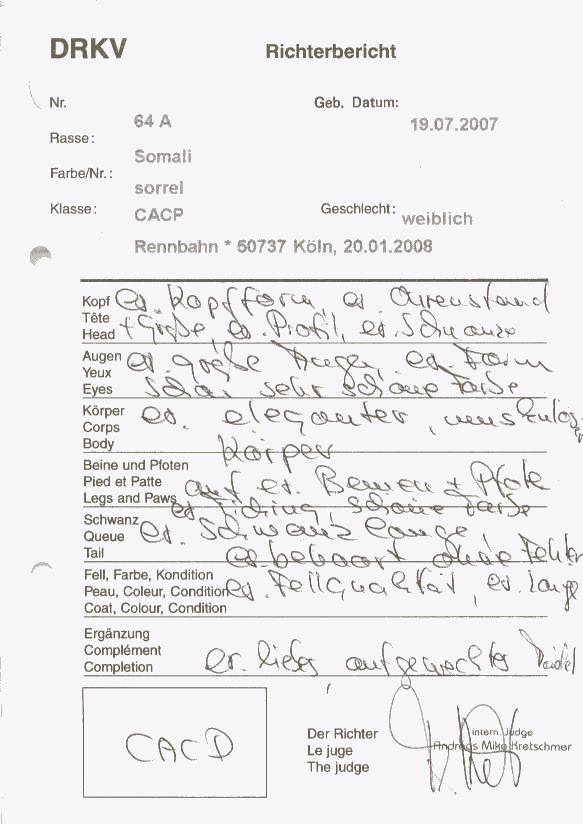 DRKV Richterbericht
Nr. 64 A Geb. Datum: 19.07.2007
Rasse: Somali
Farbe/Nr.: sorrel
Klasse: CACP Geschlecht: weiblich
Rennbahn * 50737 Köln, 20.01.2008
Kopf ex. Kopfform, ex. Ohrenstand
Tête
Head + Größe, ex. Profil, ex. Schnauze
Augen ex. große Augen, ex. Form
Yeux
Eyes schön sehr schöne Farbe
Körper ex. eleganter,
Corps
Body Körper
Beine und Pfoten
Pied et Patte auf ex. Beinen + Pfote
Legs and Paws ex. Ticking, schöne Farbe
Schwanz
Queue ex. Schwanz Länge,
Tail ex. behaart ohne Fehler
Fell, Farbe, Kondition
Peau, Couleur, Condition ex. Fellqualität, ex. Länge
Coat, Colour, Condition
Ergänzung
Complément
Completion ex. liebes aufgewecktes
CACP
Der Richter
Le juge
The judge
intern. Judge
Andreas Mike Kretschmer